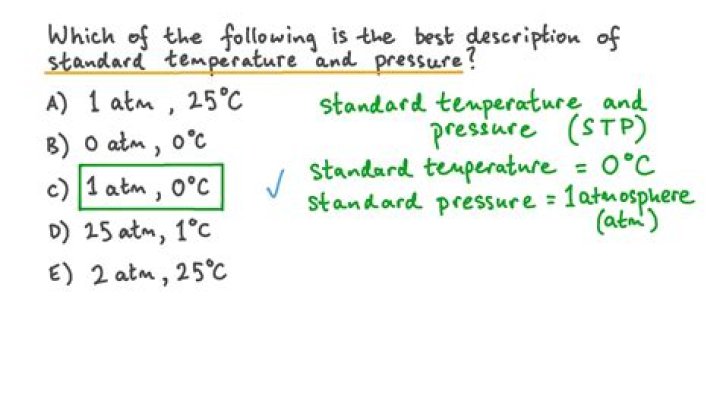 Which of the following is the best description of
standard temperature and pressure?
A) 1 atm , 25°C
B) 0 atm , 0°C
C) 1 atm , 0°C
D) 25 atm, 1°C
E) 2 atm , 25°C
Standard temperature and
pressure (STP)
Standard temperature = 0°C
Standard pressure = 1 atmosphere
(atm)